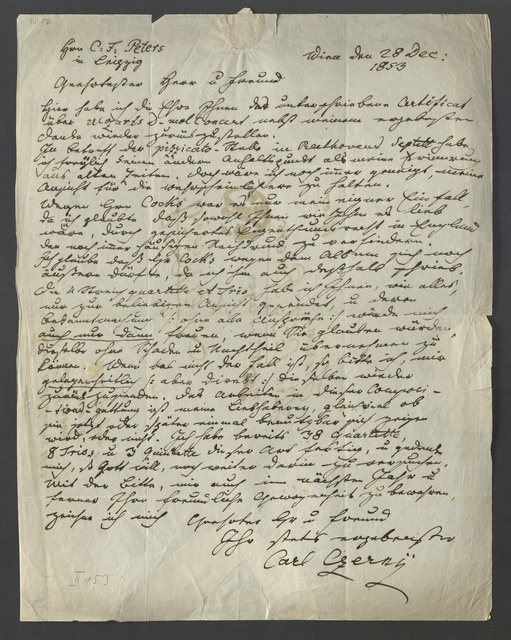 Hrn C: F: Peters
in Leipzig
Wien den 28 Dec:
1853
Geehrtester Herr u Freund
Hier habe ich die Ehre Ihnen das unterschriebene Certificat
über Mozarts D-moll Concert nebst meinem ergebensten
Danke wieder zurück zu stellen.
In Betreff der pizzicato-Stelle in Beethovens Septett habe
ich freilich keinen andern Anhaltspunkt als meine Erinnerung
aus alten Zeiten. Doch wäre ich noch immer geneigt, meine
Ansicht für die wahrscheinlichere zu halten.
Wegen Hrn Cocks war es nur mein eigner Einfall,
da ich glaubte daß sowohl Ihnen als ihm es lieb
wäre, durch gesichertes Eigenthumsrecht in England
den noch immer häufigen Nachdruck zu verhindern.
Ich glaube daß Hr Cocks wegen dem Album sich noch
äußern dürfte, da ich ihm auch deßhalb schrieb.
Die 4 Streichquartette et Trio, habe ich Ihnen, wie alles,
nur zur beliebigen Ansicht gesendet, u deren
Bekanntmachung /: ohne alle Ansprüche :/ würde mich
auch nur dann freuen, wenn Sie glauben würden,
dieselben ohne Schaden u Nachtheil übernehmen zu
können. Wenn das nicht der Fall ist, so bitte ich, mir
gelegenheitlich /: aber direkt :/ dieselben wieder
zurückzusenden. Das Arbeiten in dieser Composi-
tionsgattung ist meine Liebhaberey, gleichviel ob
sie jetzt oder später einmal brauchbar sich zeigen
wird, oder nicht. Ich habe bereits 38 Quartette,
8 Trios u 3 Quintette dieser Art fertig, u gedenke
mich, so Gott will, noch weiter darin zu versuchen.
Mit der Bitte, mir auch im nächsten Jahr u
ferner Ihre freundliche Gewogenheit zu bewahren,
zeichne ich mich Geehrter Hr u Freund
Ihr stets ergebenster
Carl Czerny
II 153